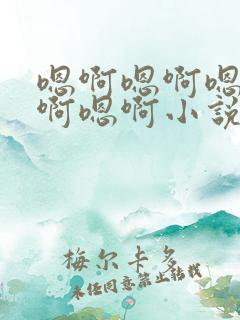 嗯啊嗯啊嗯
啊嗯啊小说
梅尔卡多
未经同意禁止转载